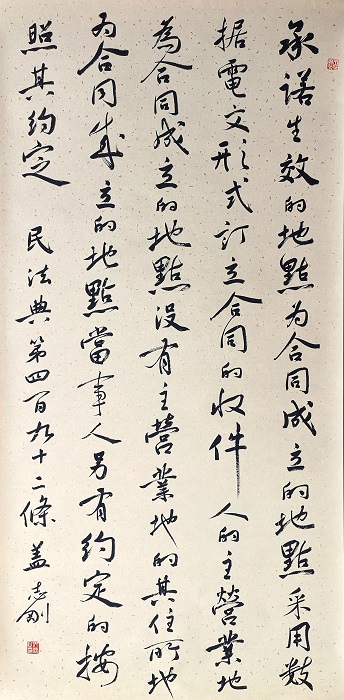 承诺生效的地點为合同成立的地點采用数
据電文形式訂立合同的收件人的主營業地
為合同成立的地點没有主營業地的其住所地
为合同成立的地點當事人另有约定的按
照其约定 民法典第四百九十二條 盖志刚